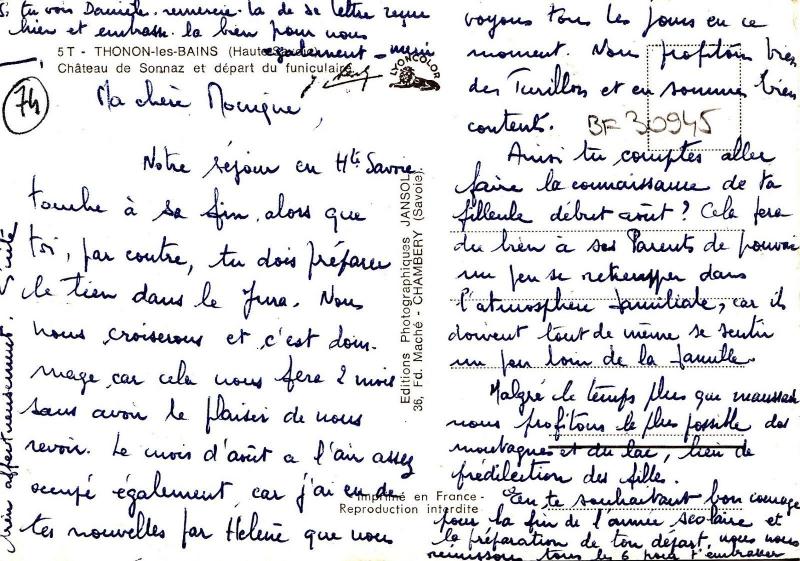 Si tu vois Danièle, remercie-la de sa lettre reçue
hier et embrasse-la bien pour nous
également - merci
5 T - THONON-les-BAINS (Haute-Savoie)
Château de Sonnaz et départ du funiculaire
LYONCOLOR
74
Ma chère Monique,
Notre séjour en Hte Savoie
touche à sa fin, alors que
toi, par contre, tu dois préparer
le tien dans le Jura. Nous
nous croiserons et c'est dom-
mage car cela nous fera 2 mois
sans avoir le plaisir de nous
revoir. Le mois d'août a l'air assez
occupé également, car j'ai eu de
tes nouvelles par Hélène que nous
voyons tous les jours en ce
moment. Nous profitons bien
des Turillon et en sommes bien
contents.
BF 30945
Ainsi tu comptes aller
faire la connaissance de ta
filleule début août ? Cela fera
du bien à ses Parents de pouvoir
un peu se retremper dans
l'atmosphère familiale, car ils
doivent tout de même se sentir
un peu loin de la famille.
Malgré le temps plus que maussade
nous profitons le plus possible des
montagnes et du lac, lieu de
prédilection des filles.
En te souhaitant bon courage
pour la fin de l'année scolaire et
la préparation de ton départ, nous nous
réunissons tous les 6 pour t'embrasser
bien affectueusement.
Editions Photographiques JANSOL
36, Fd. Maché - CHAMBERY (Savoie).
Imprimé en France -
Reproduction interdite